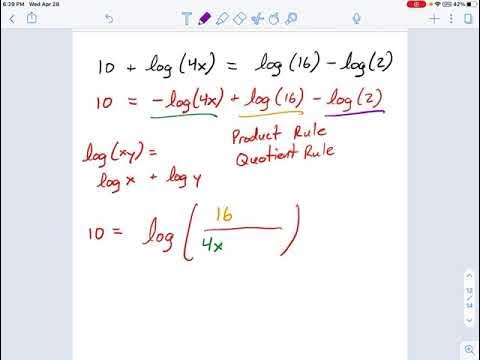 6:29 PM Wed Apr 28
42%
10 + log(4x) = log(16) - log(2)
10 = -log(4x) + log(16) - log(2)
Product Rule
Quotient Rule
log(xy) =
log x + log y
10 = log(16/4x)
12
/
14